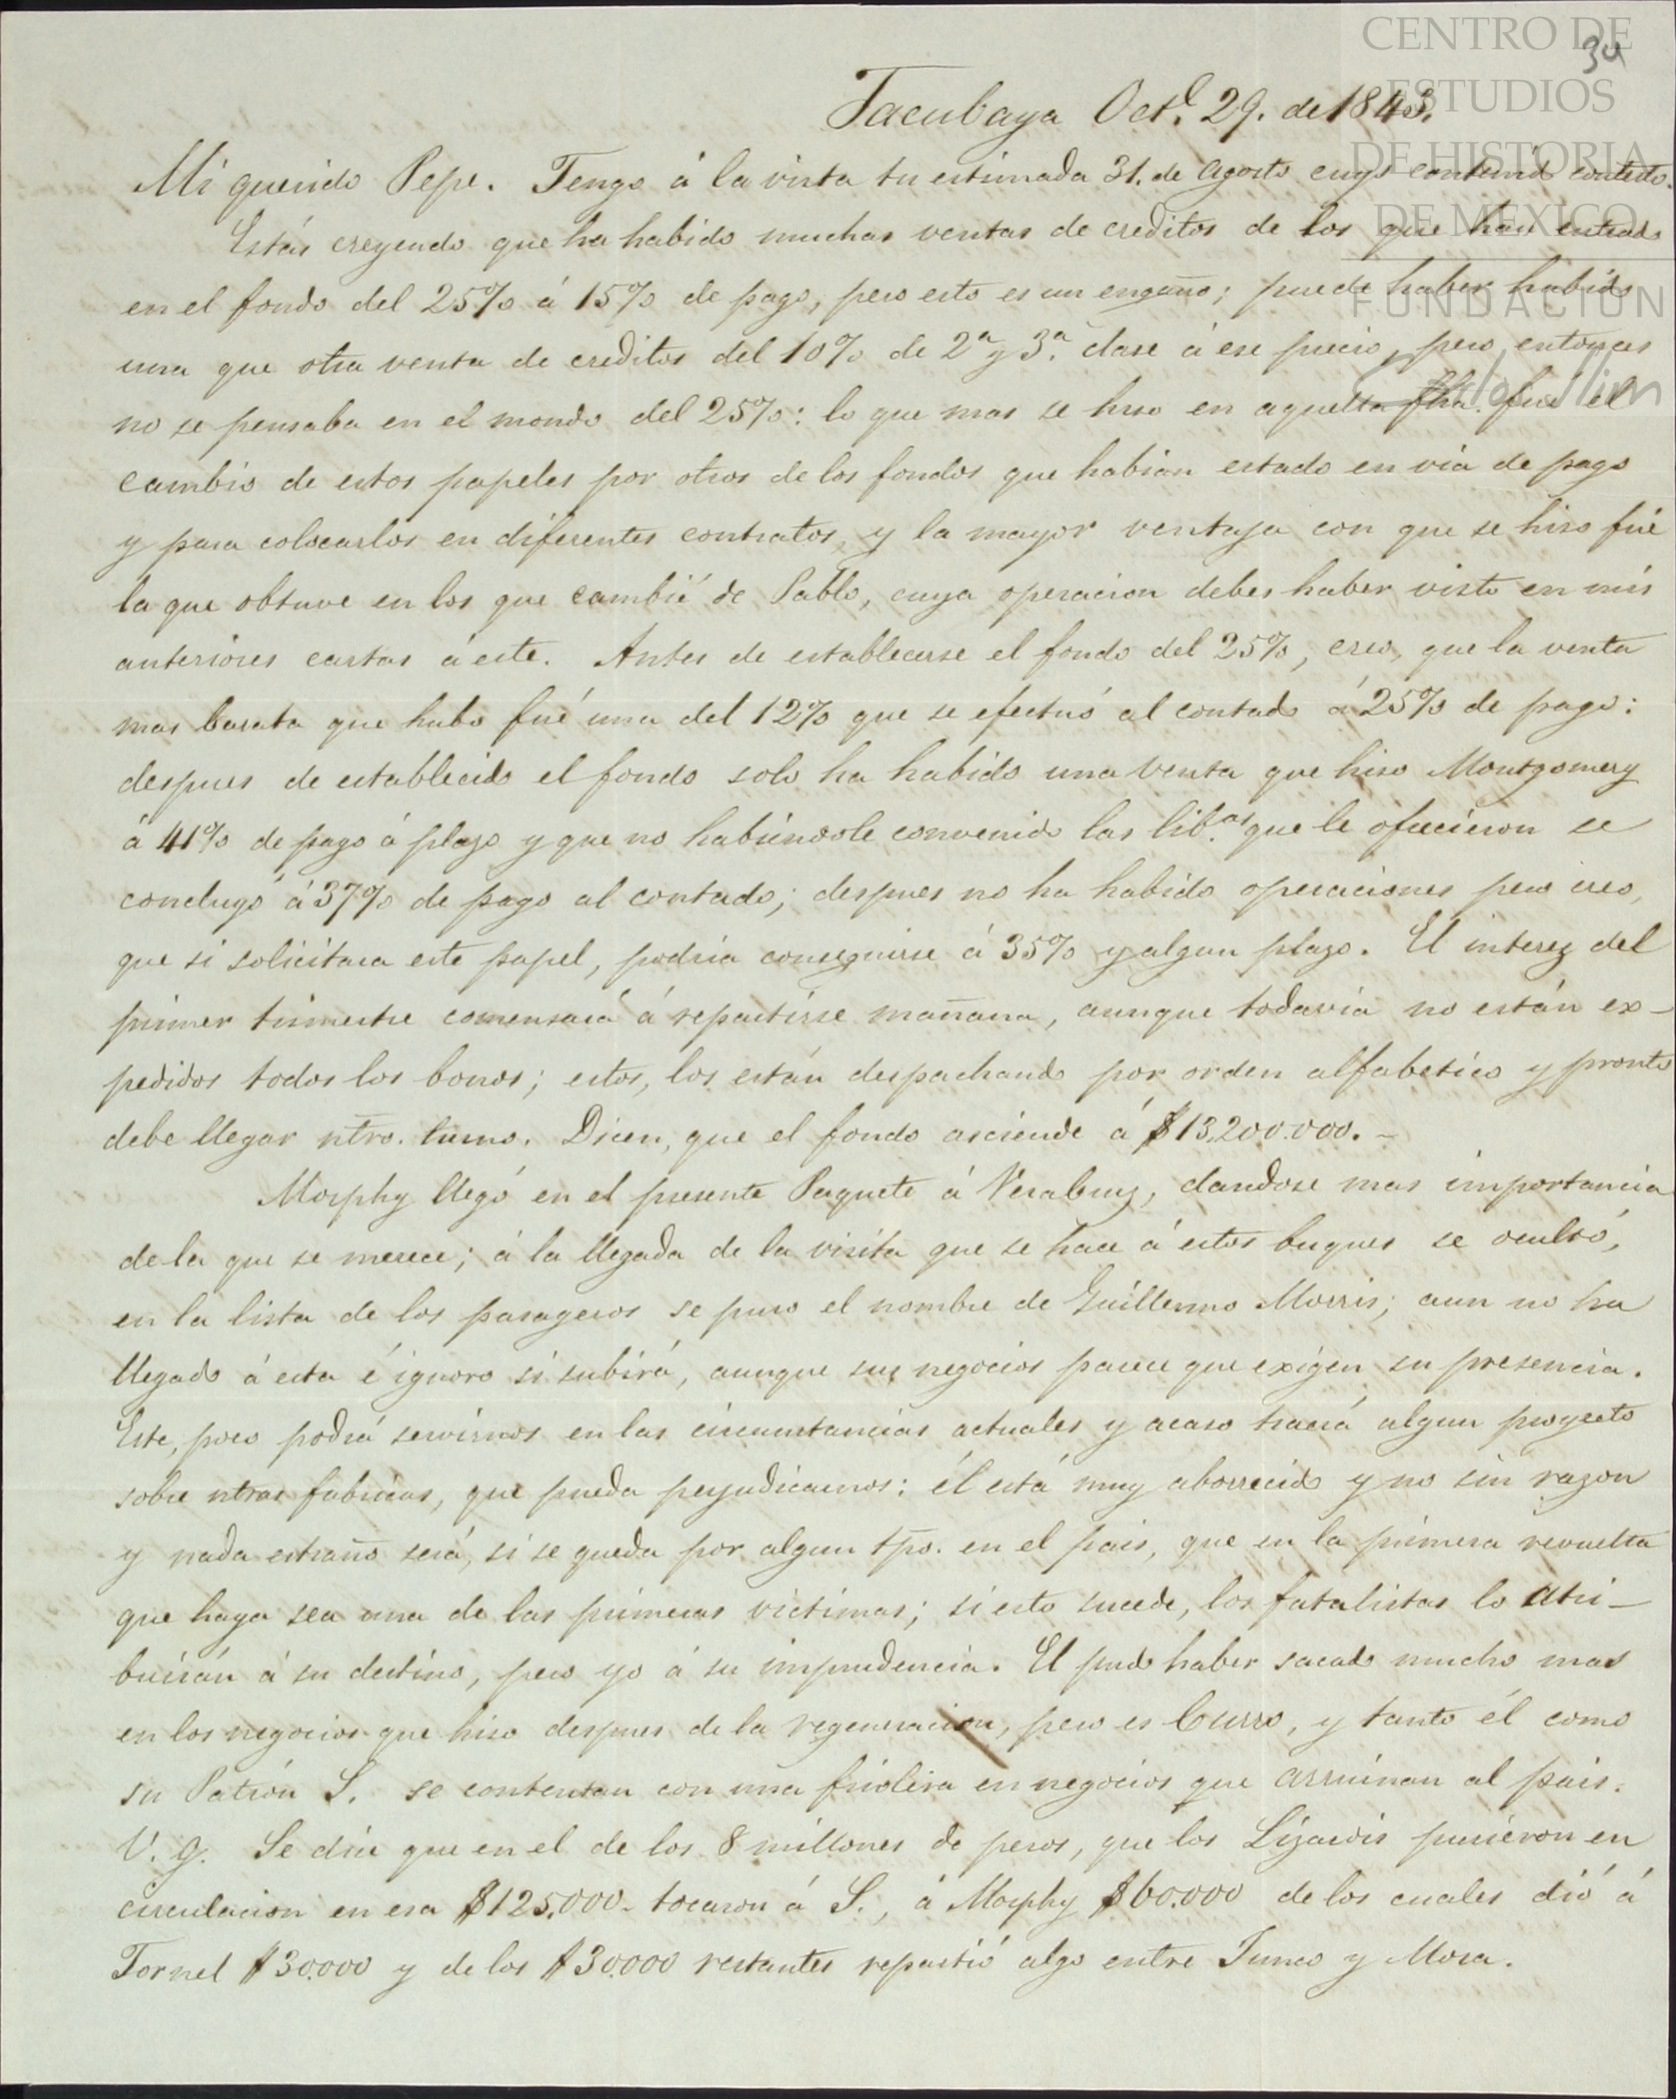 CENTRO DE
ESTUDIOS
DE HISTORIA
DE MEXICO
FUNDACIÓN
34
Tacubaya Oct.e 29. de 1843.
Mi querido Pepe. Tengo á la vista tu estimada 31. de Agosto cuyo contenido contesto.
Estás creyendo que ha habido muchas ventas de creditos de los que han entrado
en el fondo del 25% á 15% de pago, pero esto es un engaño; puede haber habido
una que otra venta de creditos del 10% de 2a y 3a. clase á ese precio, pero entonces
no se pensaba en el mondo del 25%: lo que mas se hiso en aquella fha. fué el
cambio de estos papeles por otros de los fondos que habian estado en via de pago
y para colocarlos en diferentes contratos, y la mayor ventaja con que se hiso fué
la que obtuve en los que cambié de Pablo, cuya operacion debes haber visto en mis
anteriores cartas á este. Antes de establecerse el fondo del 25%, creo, que la venta
mas barata que hubo fué una del 12% que se efectuó al contado á 25% de pago:
despues de establecido el fondo solo ha habido una venta que hiso Montgomery
á 41% de pago á plazo y que no habiendole convenido las lib.as que le ofrecieron se
concluyó á 37% de pago al contado; despues no ha habido operaciones pero creo,
que si solicitara este papel, podria conseguirse á 35% y algun plazo. El interez del
primer trimestre comensará á repartirse mañana, aunque todavia no están ex-
pedidos todos los bonos; estos, los están despachando por orden alfabetico y pronto
debe llegar ntro. turno. Dicen, que el fondo asciende á $13,200.000.-
Morphy llegó en el presente Paquete á Veracruz, dandose mas importancia
de la que se merece; á la llegada de la visita que se hace á estos buques se ocultó,
en la lista de los pasageros se puso el nombre de Guillermo Morris; aun no ha
llegado á esta é ignoro si subirá, aunque sus negocios parece que exigen su presencia.
Este, poco podrá servirnos en las circunstancias actuales y acaso traerá algun proyecto
sobre ntras fabricas, que pueda perjudicarnos: él está muy aborrecido y no sin razon
y nada estraño será, si se queda por algun tpo. en el pais, que en la primera revuelta
que haya sea una de las primeras victimas; si esto sucede, los fatalistas lo atri-
buirán á su destino, pero yo á su imprudencia. El pudo haber sacado mucho mas
en los negocios que hiso despues de la regeneracion, pero es Curro, y tanto él como
su Patrón S. se contentan con una friolera en negocios que arruinan al pais.
V. g. Se dice que en el de los 8 millones de pesos, que los Lizardis pusieron en
circulacion en esa $125.000- tocaron á S., á Morphy $60.000 de los cuales dió á
Tornel $30.000 y de los $30.000 restantes repartió algo entre Junco y Mora.